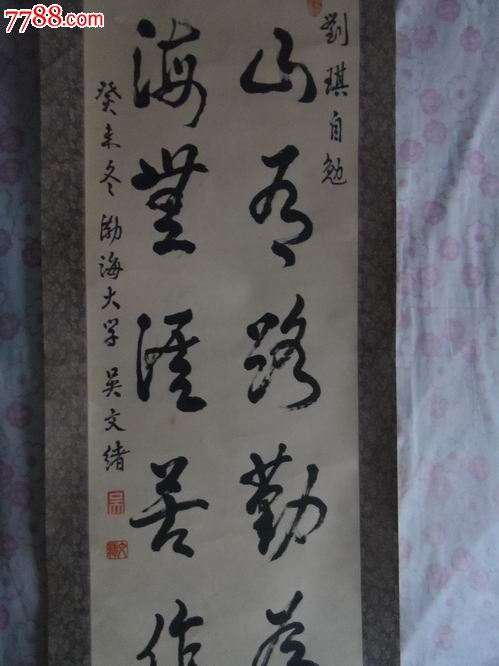 7788.com
劉琪自勉
山有路勤為
海無涯苦作
癸未冬渤海大学 吳文緒